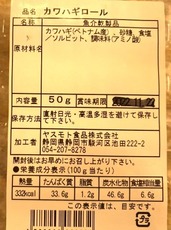 品名 カワハギロール
名称 魚介乾製品
原材料名 カワハギ(ベトナム産)、砂糖、食塩
／ソルビット、調味料(アミノ酸)
内容量 50g 賞味期限 2022.11.22
保存方法 直射日光・高温多湿を避けて保存して
下さい。
加工者 ヤスモト食品株式会社
静岡県静岡市駿河区池田222-2
054-207-8278
開封後はお早めにお召し上がり下さい。
●栄養成分表示(100g当たり)
熱量 たんぱく質 脂質 炭水化物 食塩相当量
332kcal 33.6g 1.2g 46.6g 6.6g
です。